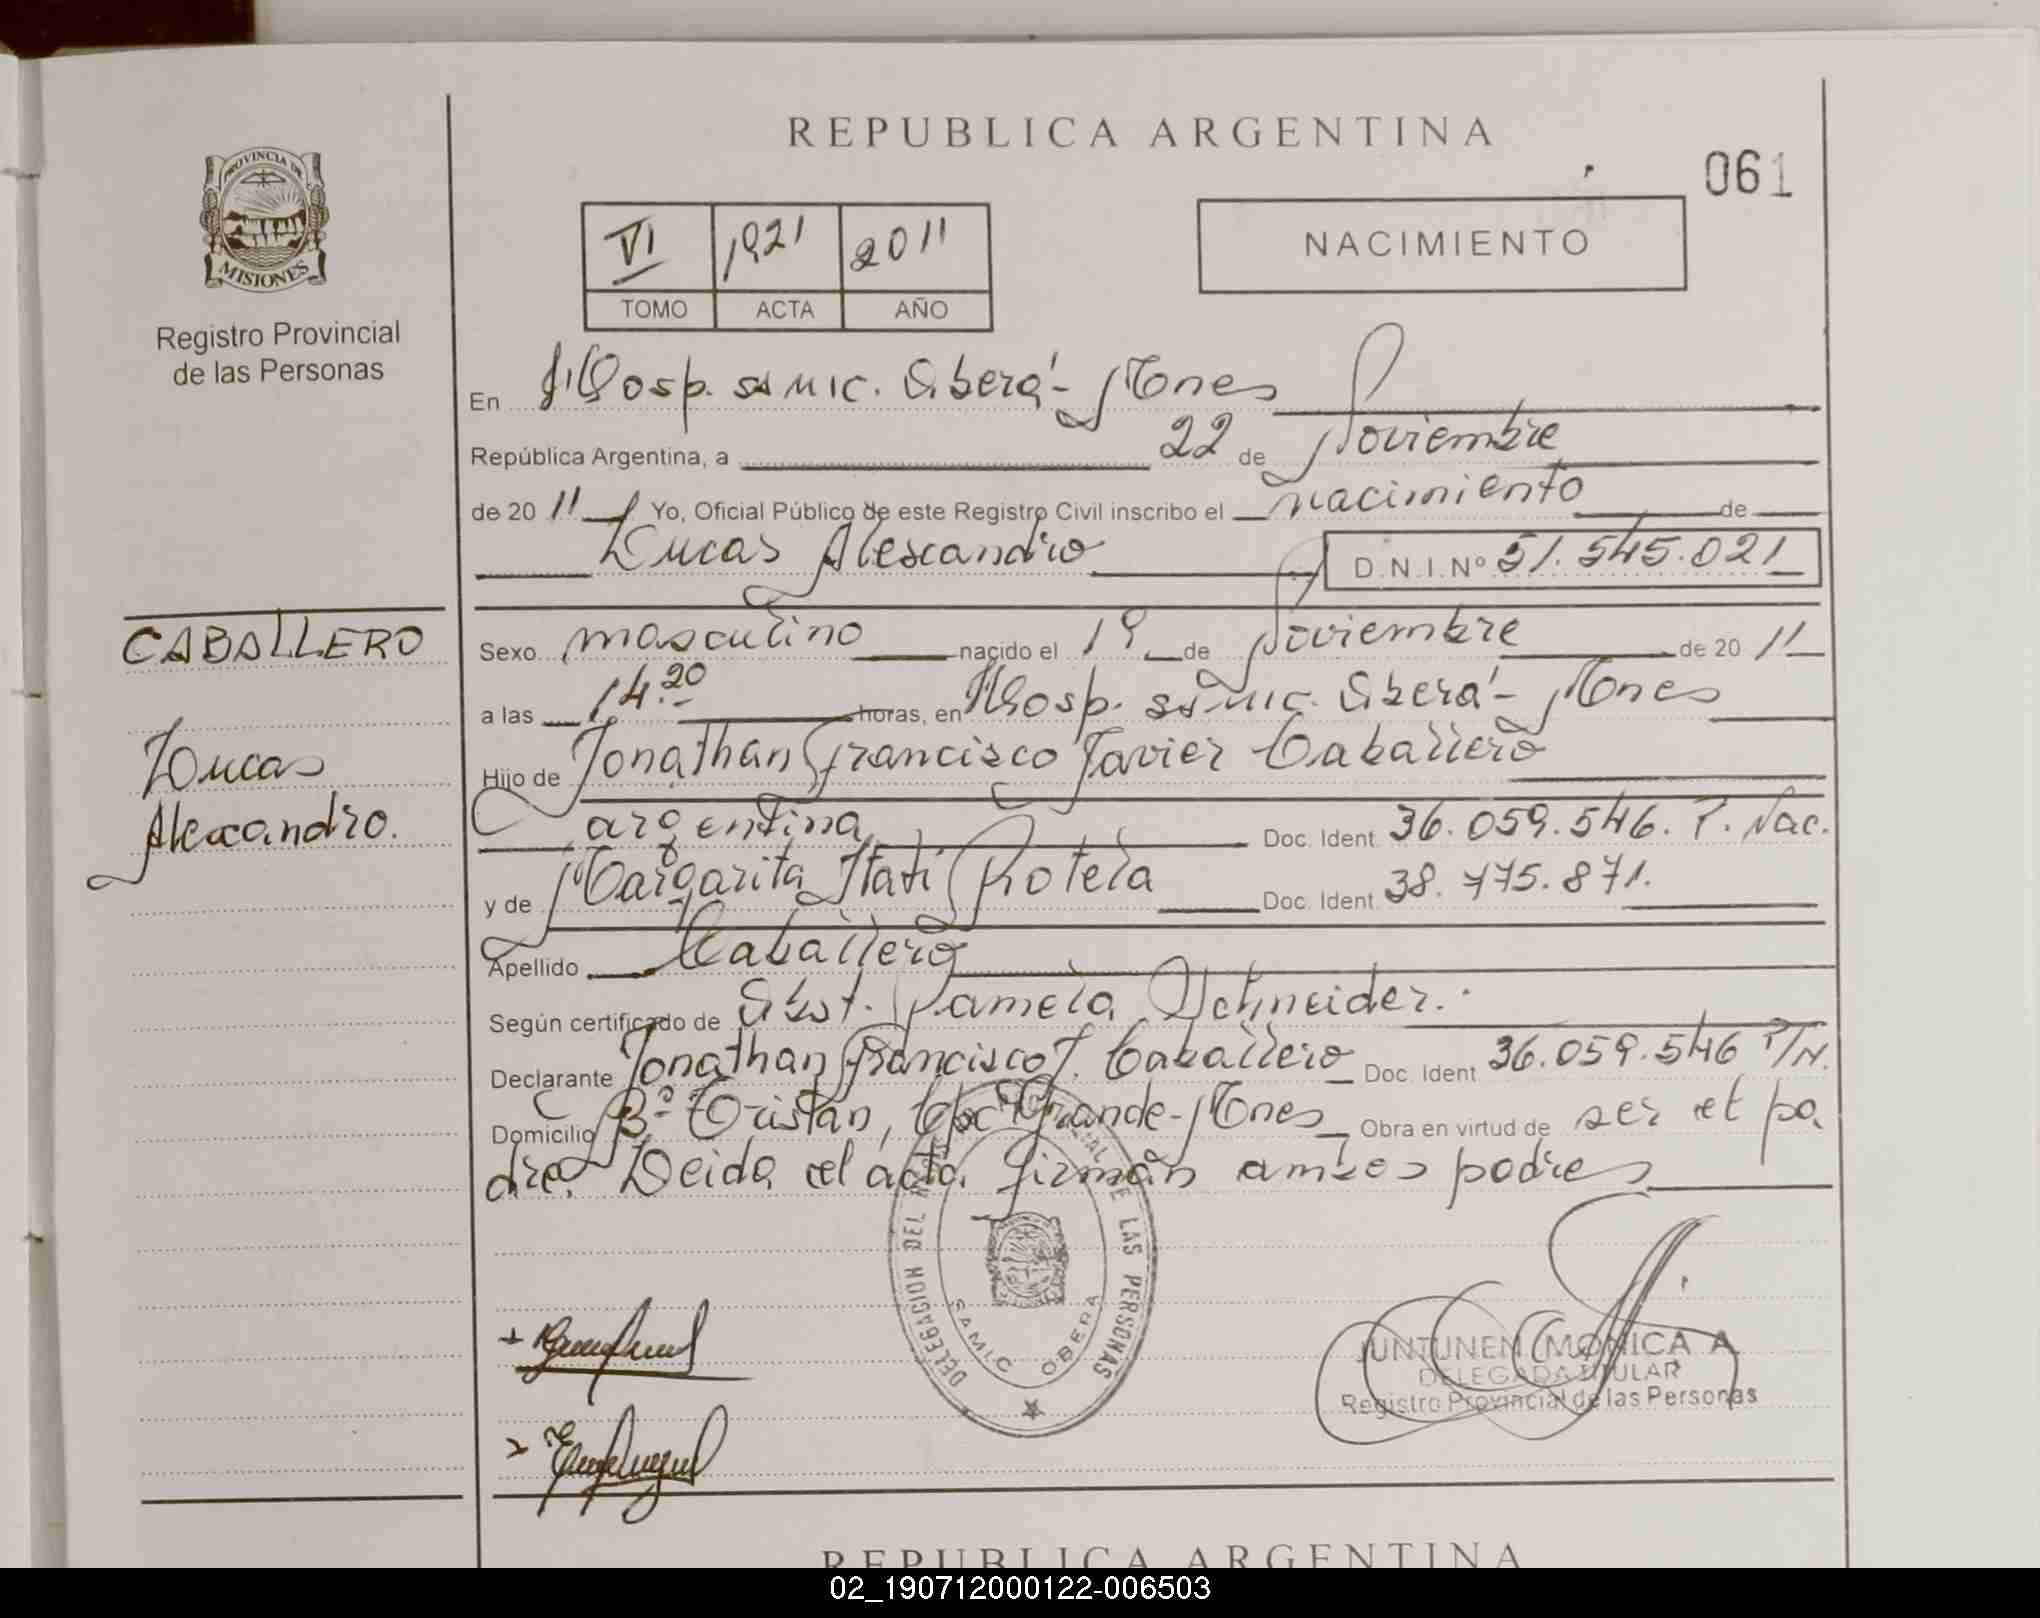 REPUBLICA ARGENTINA
061
PROVINCIA DE
MISIONES
Registro Provincial
de las Personas
VI 1921 2011
TOMO ACTA AÑO
NACIMIENTO
En Hosp. SAMIC. Oberá - Mones
República Argentina, a 22 de Noviembre
de 20 11 Yo, Oficial Público de este Registro Civil inscribo el nacimiento de
Lucas Alexandro D.N.I.Nº 51.545.021
CABALLERO
Lucas
Alexandro.
Sexo masculino nacido el 19 de Noviembre de 20 11
a las 14.20 horas, en Hosp. SAMIC. Oberá - Mones
Hijo de Jonathan Francisco Javier Caballero
argentina Doc. Ident. 36.059.546. P. Nac.
y de Margarita Itati Rotela Doc. Ident. 38.775.871.
Apellido Caballero
Según certificado de Obst. Pamela Schneider.
Declarante Jonathan Francisco J. Caballero Doc. Ident 36.059.546 P/N.
Domicilio Bº Cristan, Grande - Mones Obra en virtud de ser el pa
dre. Leida el acta firman ambos padres
DELEGACION DEL DE LAS PERSONAS
SAMIC OBERA
JUNTUNEN MONICA A.
DELEGADA TITULAR
Registro Provincial de las Personas
REPUBLICA ARGENTINA
02_190712000122-006503